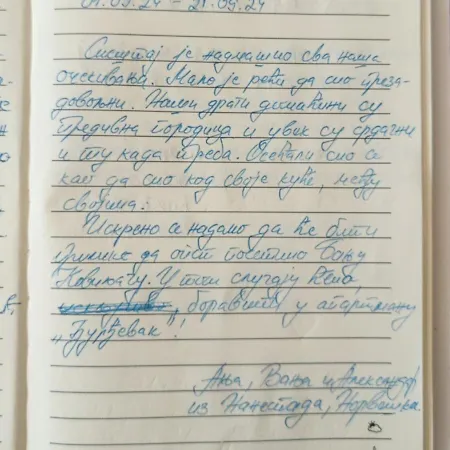 07.09.24 - 21.09.24
Смештај је надмашио сва наша
очекивања. Мало је рећи да смо преза-
довољни. Наши драги домаћини су
предивна породица и увек су срдачни
и ту када треба. Осећали смо се
као да смо код своје куће, међу
својима.
Искрено се надамо да ће бити
прилике да опет посетимо Бању
Ковиљачу. У том случају ћемо,
боравити у апартману
„Ђурђевак"!
Ања, Вања и Александар
из Норвешка.